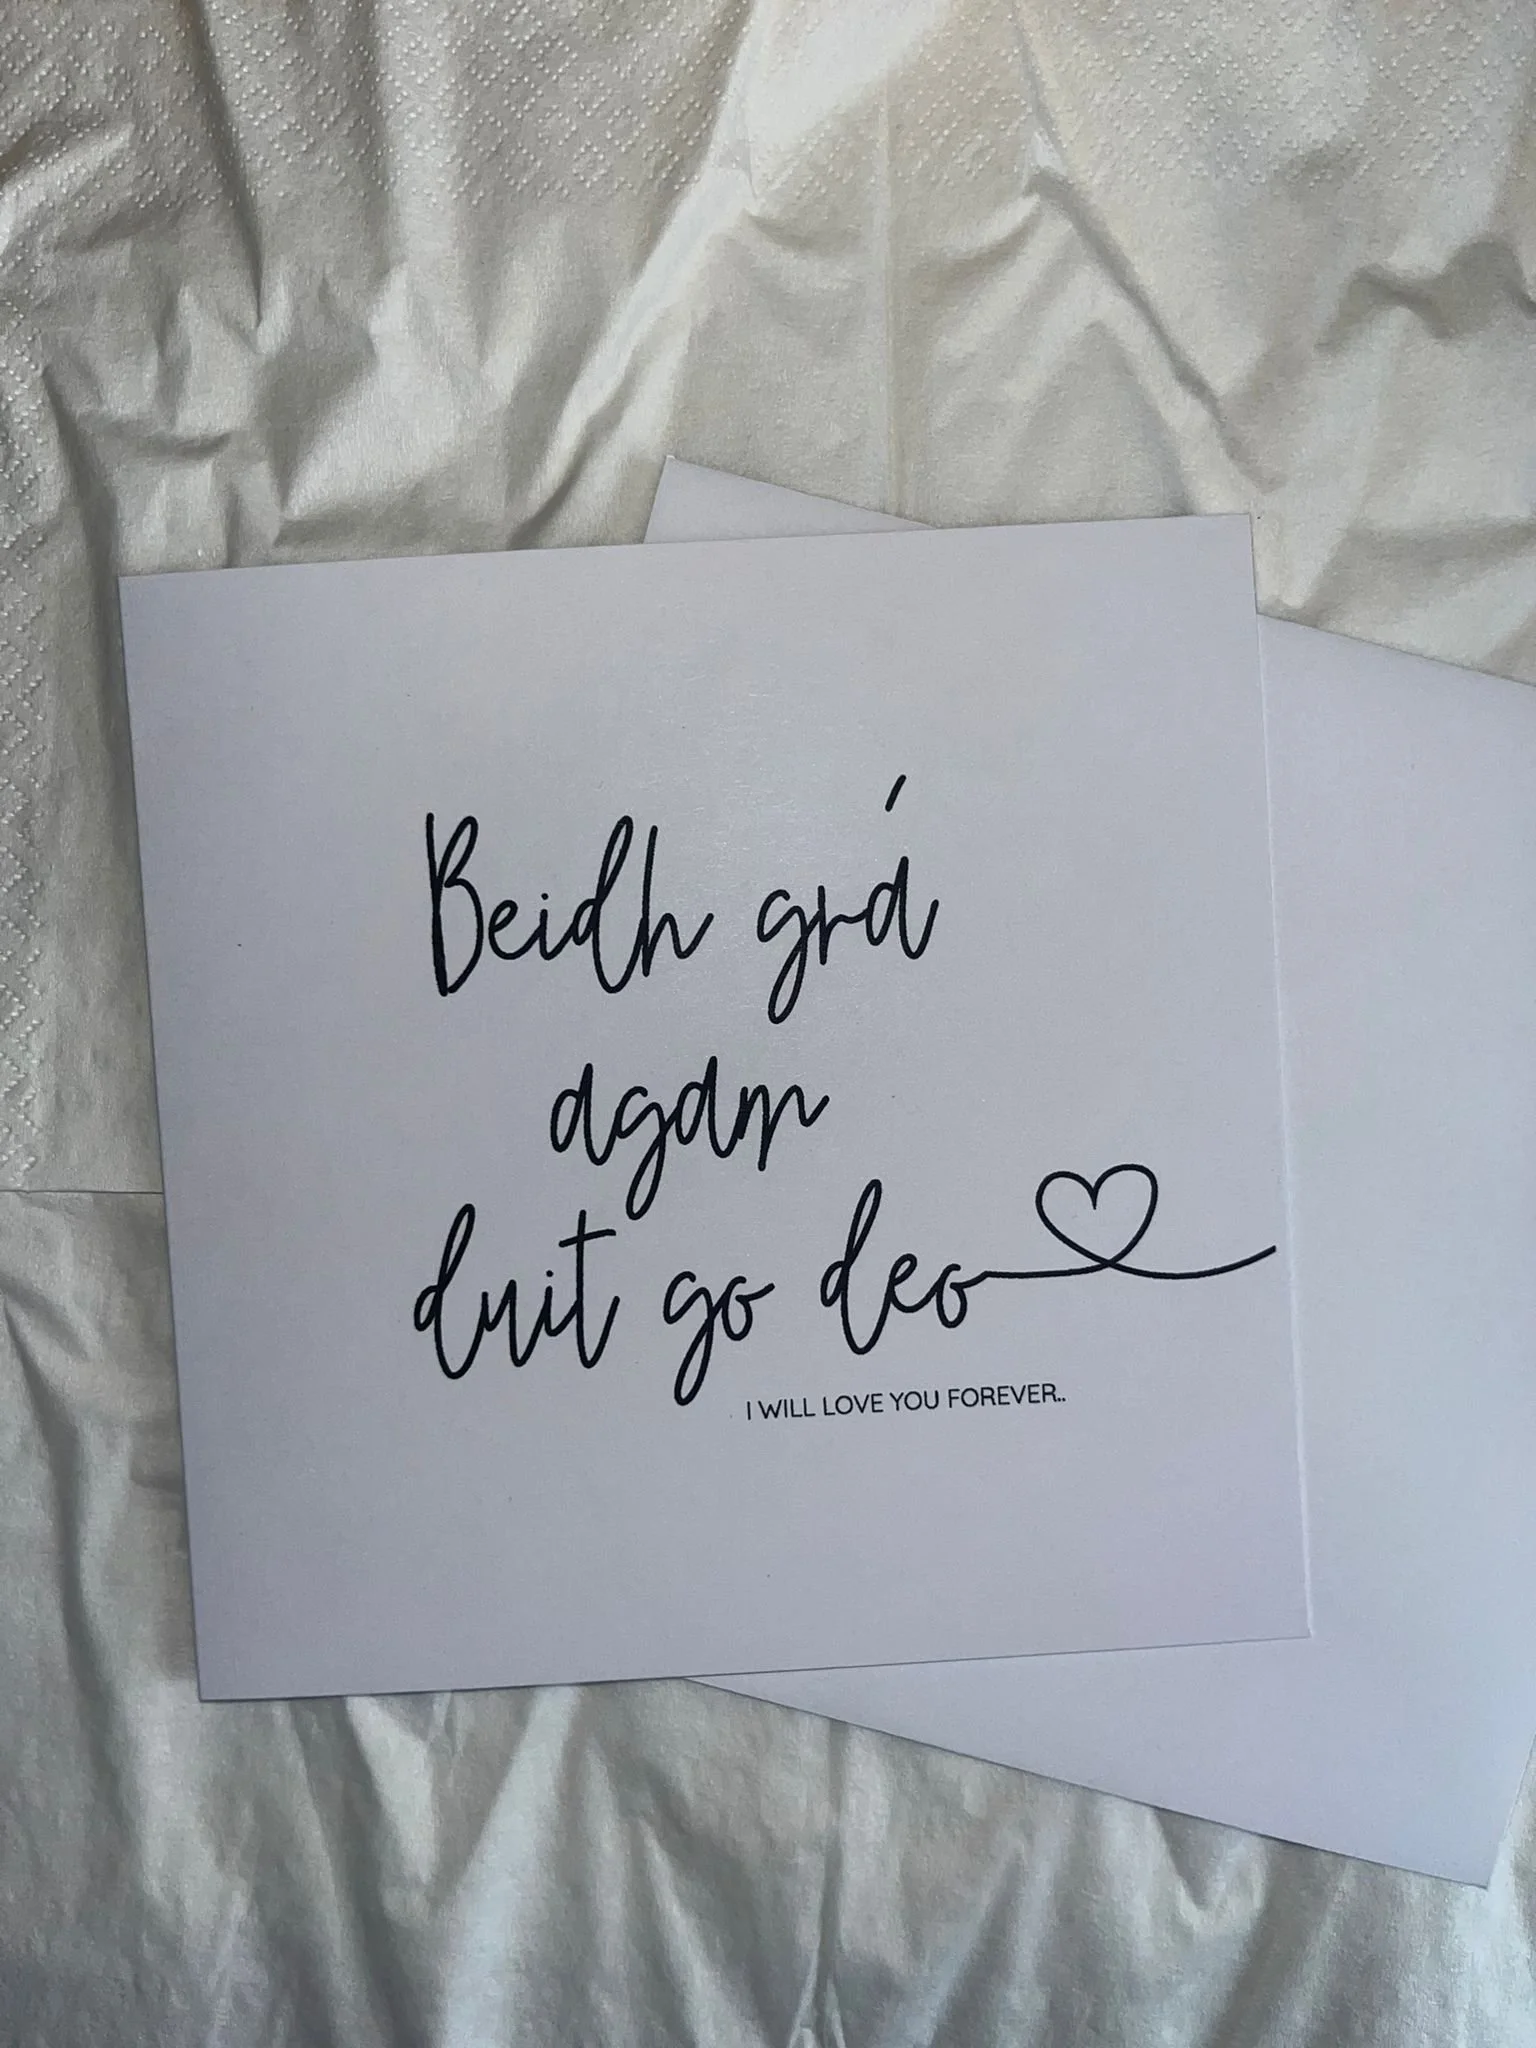 Beidh grá
agam
duit go deo
I WILL LOVE YOU FOREVER..